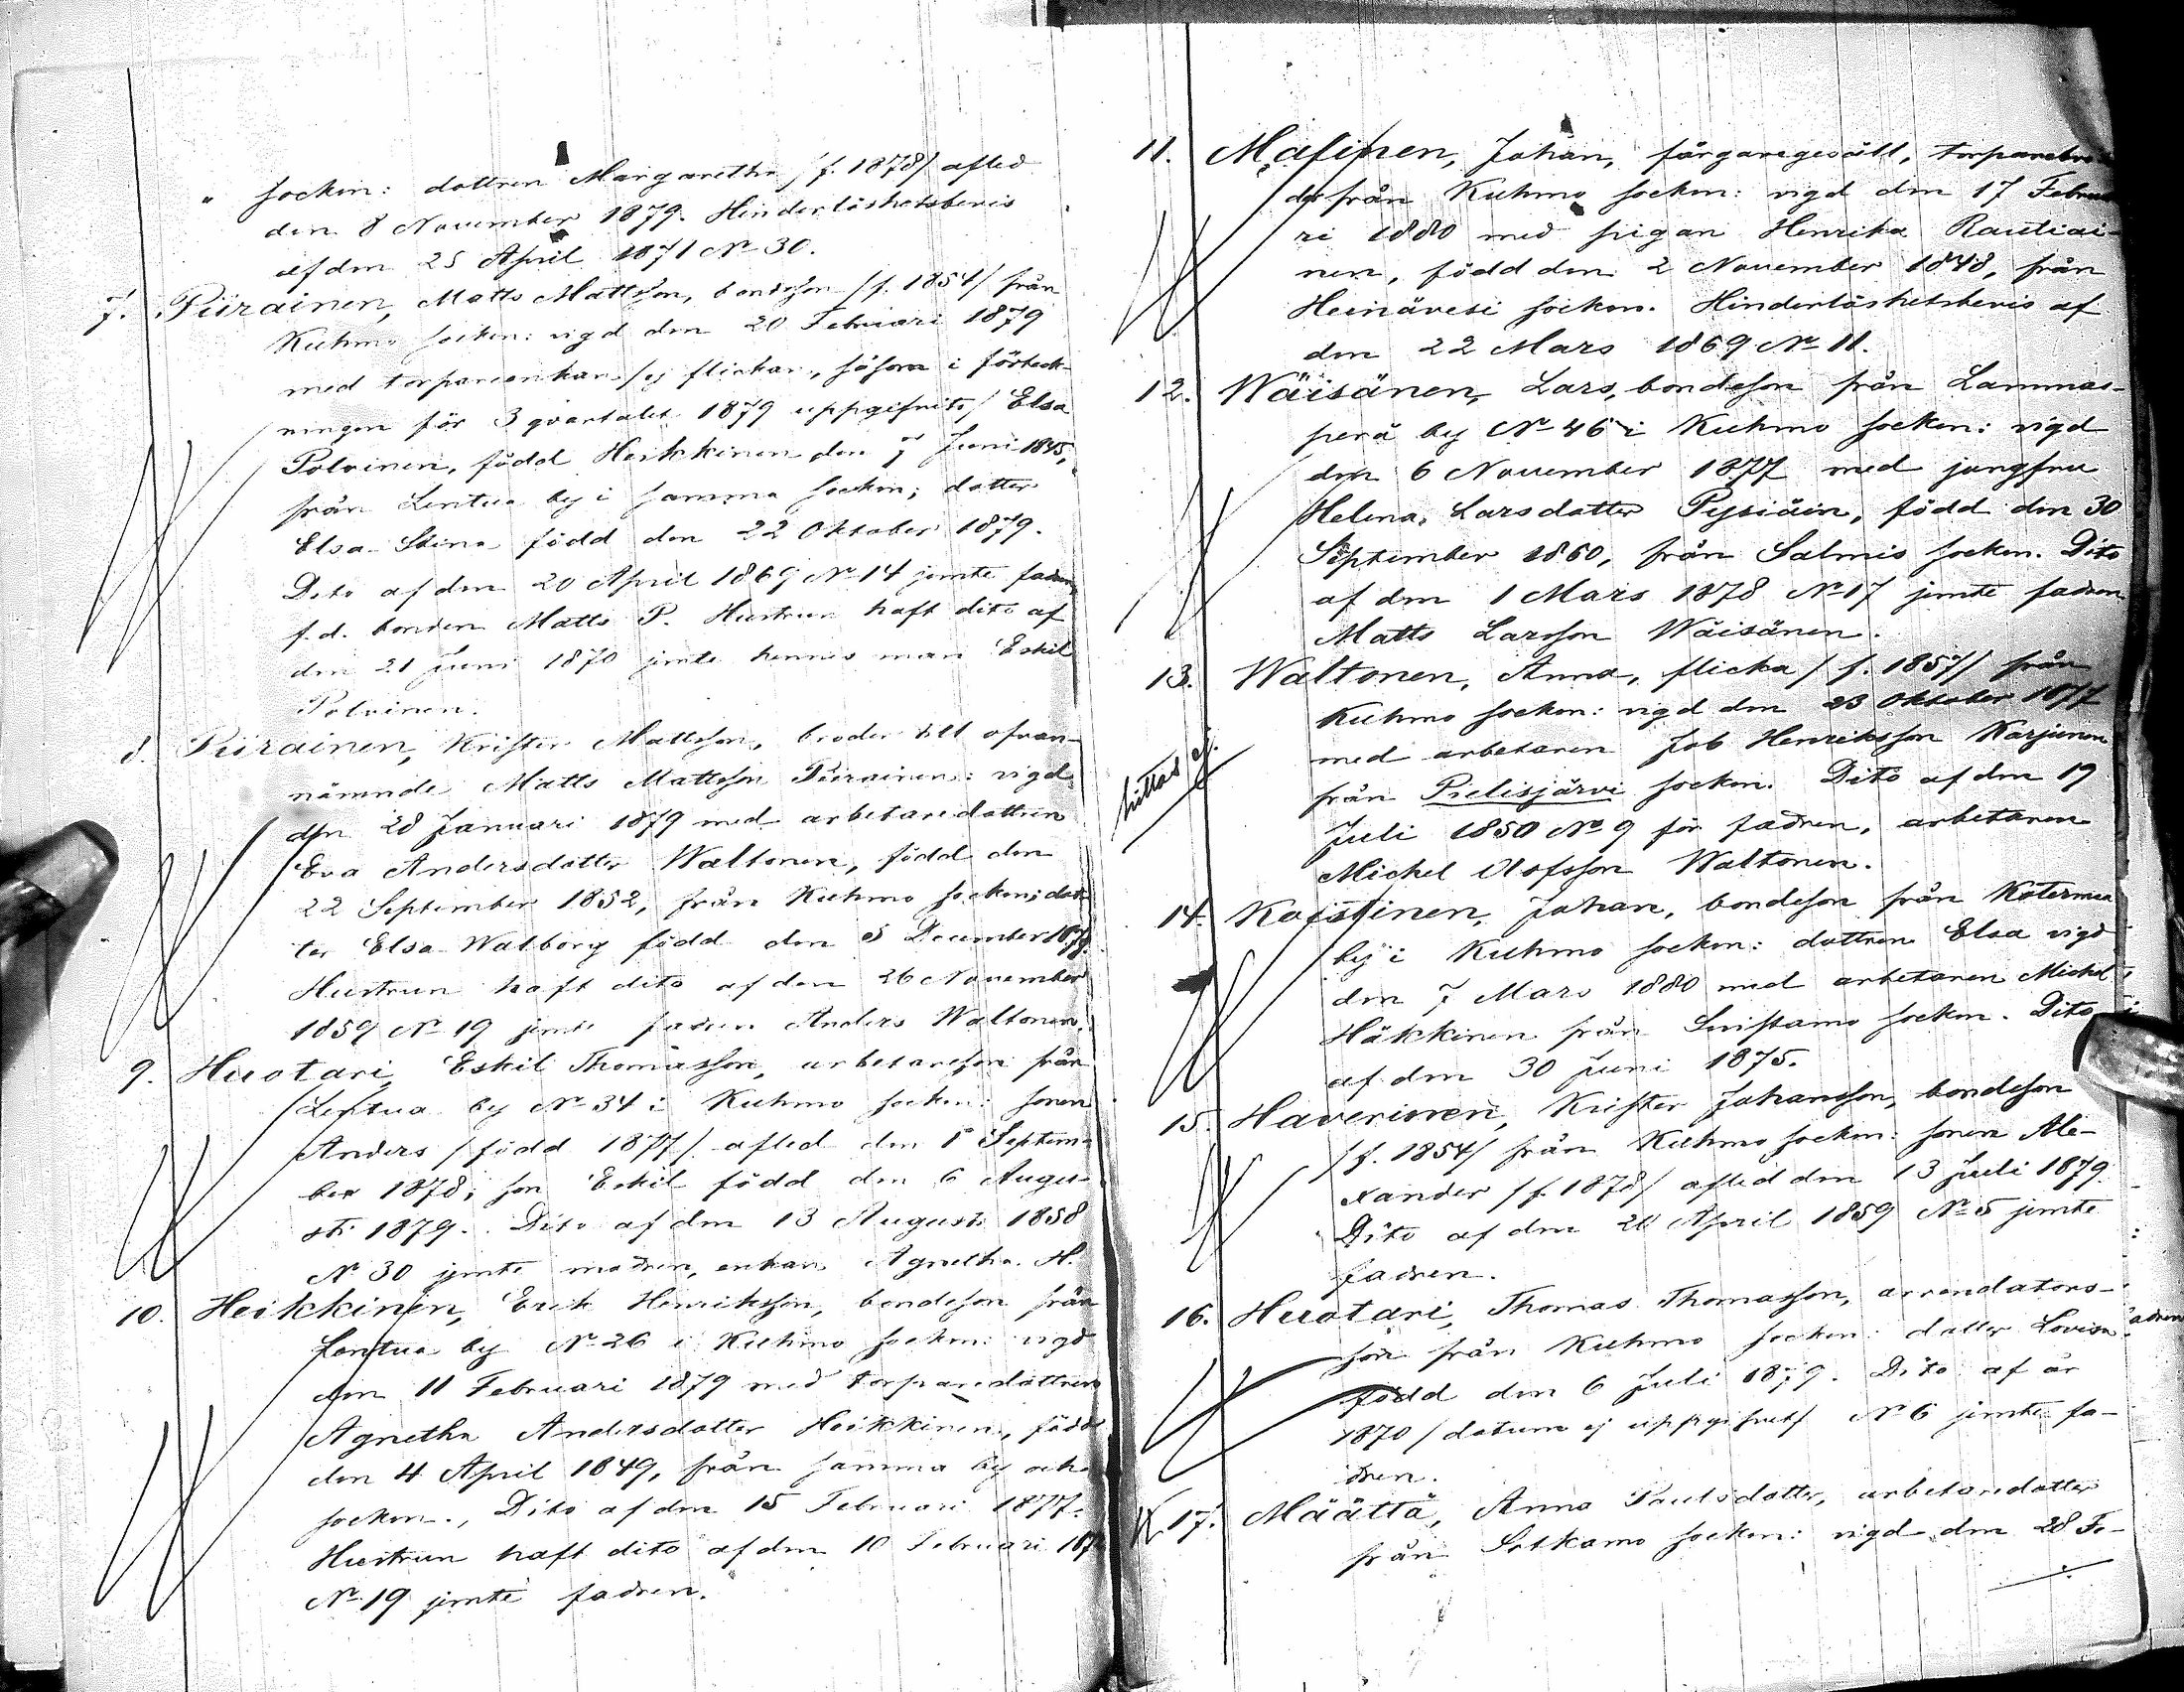 " socken: dottren Margaretha /f. 1878/ afled
den 8 November 1879. Hinderlöshetsbevis
af den 25 April 1871 No 30.
7. Piirainen, Matts Mattsson, bondeson /f. 1854/ från
Kuhmo socken: vigd den 20 Februari 1879
med torpareenkan /ej flickan, såsom i förteck-
ningen för 3 qvartalet 1879 uppgifvits/ Elsa
Polvinen, född Heikkinen den 7 Juni 1845,
från Lentua by i samma socken; dotter
Elsa Stina född den 22 Oktober 1879.
Dito af den 20 April 1869 No 14 jemte fadren
f.d. bonden Matts P. Hustrun haft dito af
den 21 Juni 1870 jemte hennes man Eskil
Polvinen.
8. Piirainen, Krister Mattsson, broder till ofvan-
nämnde Matts Mattsson Piirainen: vigd
den 28 Januari 1879 med arbetaredottren
Eva Andersdotter Waltonen, född den
22 September 1852, från Kuhmo socken; dot-
ter Elsa Walborg född den 3 December 1879.
Hustrun haft dito af den 26 November
1859 No 19 jemte fadren Anders Waltonen.
9. Huotari, Eskil Thomasson, arbetareson från
Lentua by No 34 i Kuhmo socken: sonen
Anders /född 1877/ afled den 1 Septem-
ber 1878; son Eskil född den 6 Augu-
sti 1879. Dito af den 13 Augusti 1858
No 30 jemte modren, enkan Agnetha H.
10. Heikkinen, Erik Henriksson, bondeson från
Lentua by No 26 i Kuhmo socken: vigd
den 11 Februari 1879 med torparedottren
Agnetha Andersdotter Heikkinen, född
den 4 April 1849, från samma by och
socken., Dito af den 15 Februari 1877.
Hustrun haft dito af den 10 Februari
No 19 jemte fadren.
11. Malinen, Johan, färgaregesäll, torparebro-
der från Kuhmo socken: vigd den 17 Februa-
ri 1880 med pigan Henrika Rautiai-
nen, född den 2 November 1848, från
Heinävesi socken. Hinderlöshetsbevis af
den 22 Mars 1869 No 11.
12. Wäisänen, Lars, bondeson från Lammas-
perä by No 46 i Kuhmo socken: vigd
den 6 November 1877 med jungfru
Helena Larsdotter Pysiäin, född den 30
September 1860, från Salmis socken. Dito
af den 1 Mars 1878 No 17 jemte fadren
Matts Larsson Wäisänen.
13. Waltonen, Anna, flicka /f. 1857/ från
Kuhmo socken: vigd den 23 Oktober 1877
med arbetaren Job Henriksson Karjunen
hittas ej.
från Pielisjärvi socken. Dito af den 19
Juli 1850 No 9 för fadren, arbetaren
Michel Olofsson Waltonen.
14. Koistinen, Johan, bondeson från Katerma
by i Kuhmo socken: dottren Elsa vigd
den 7 Mars 1880 med arbetaren Michel
Häkkinen från Suistamo socken. Dito
af den 30 Juni 1875.
15. Haverinen, Krister Johansson, bondeson
/f. 1854/ från Kuhmo socken: sonen Ale-
xander /f. 1878/ afled den 13 Juli 1879.
Dito af den 20 April 1859 No 5 jemte
fadren.
16. Huotari, Thomas Thomasson, arrendators-
son från Kuhmo socken: dotter Lovisa
född den 6 Juli 1879. Dito af år
1870 /datum ej uppgifvet/ No 6 jemte fa-
dren.
17. Määttä, Anna Paulsdotter, arbetaredotter
från Sotkamo socken: vigd den 28 Fe-